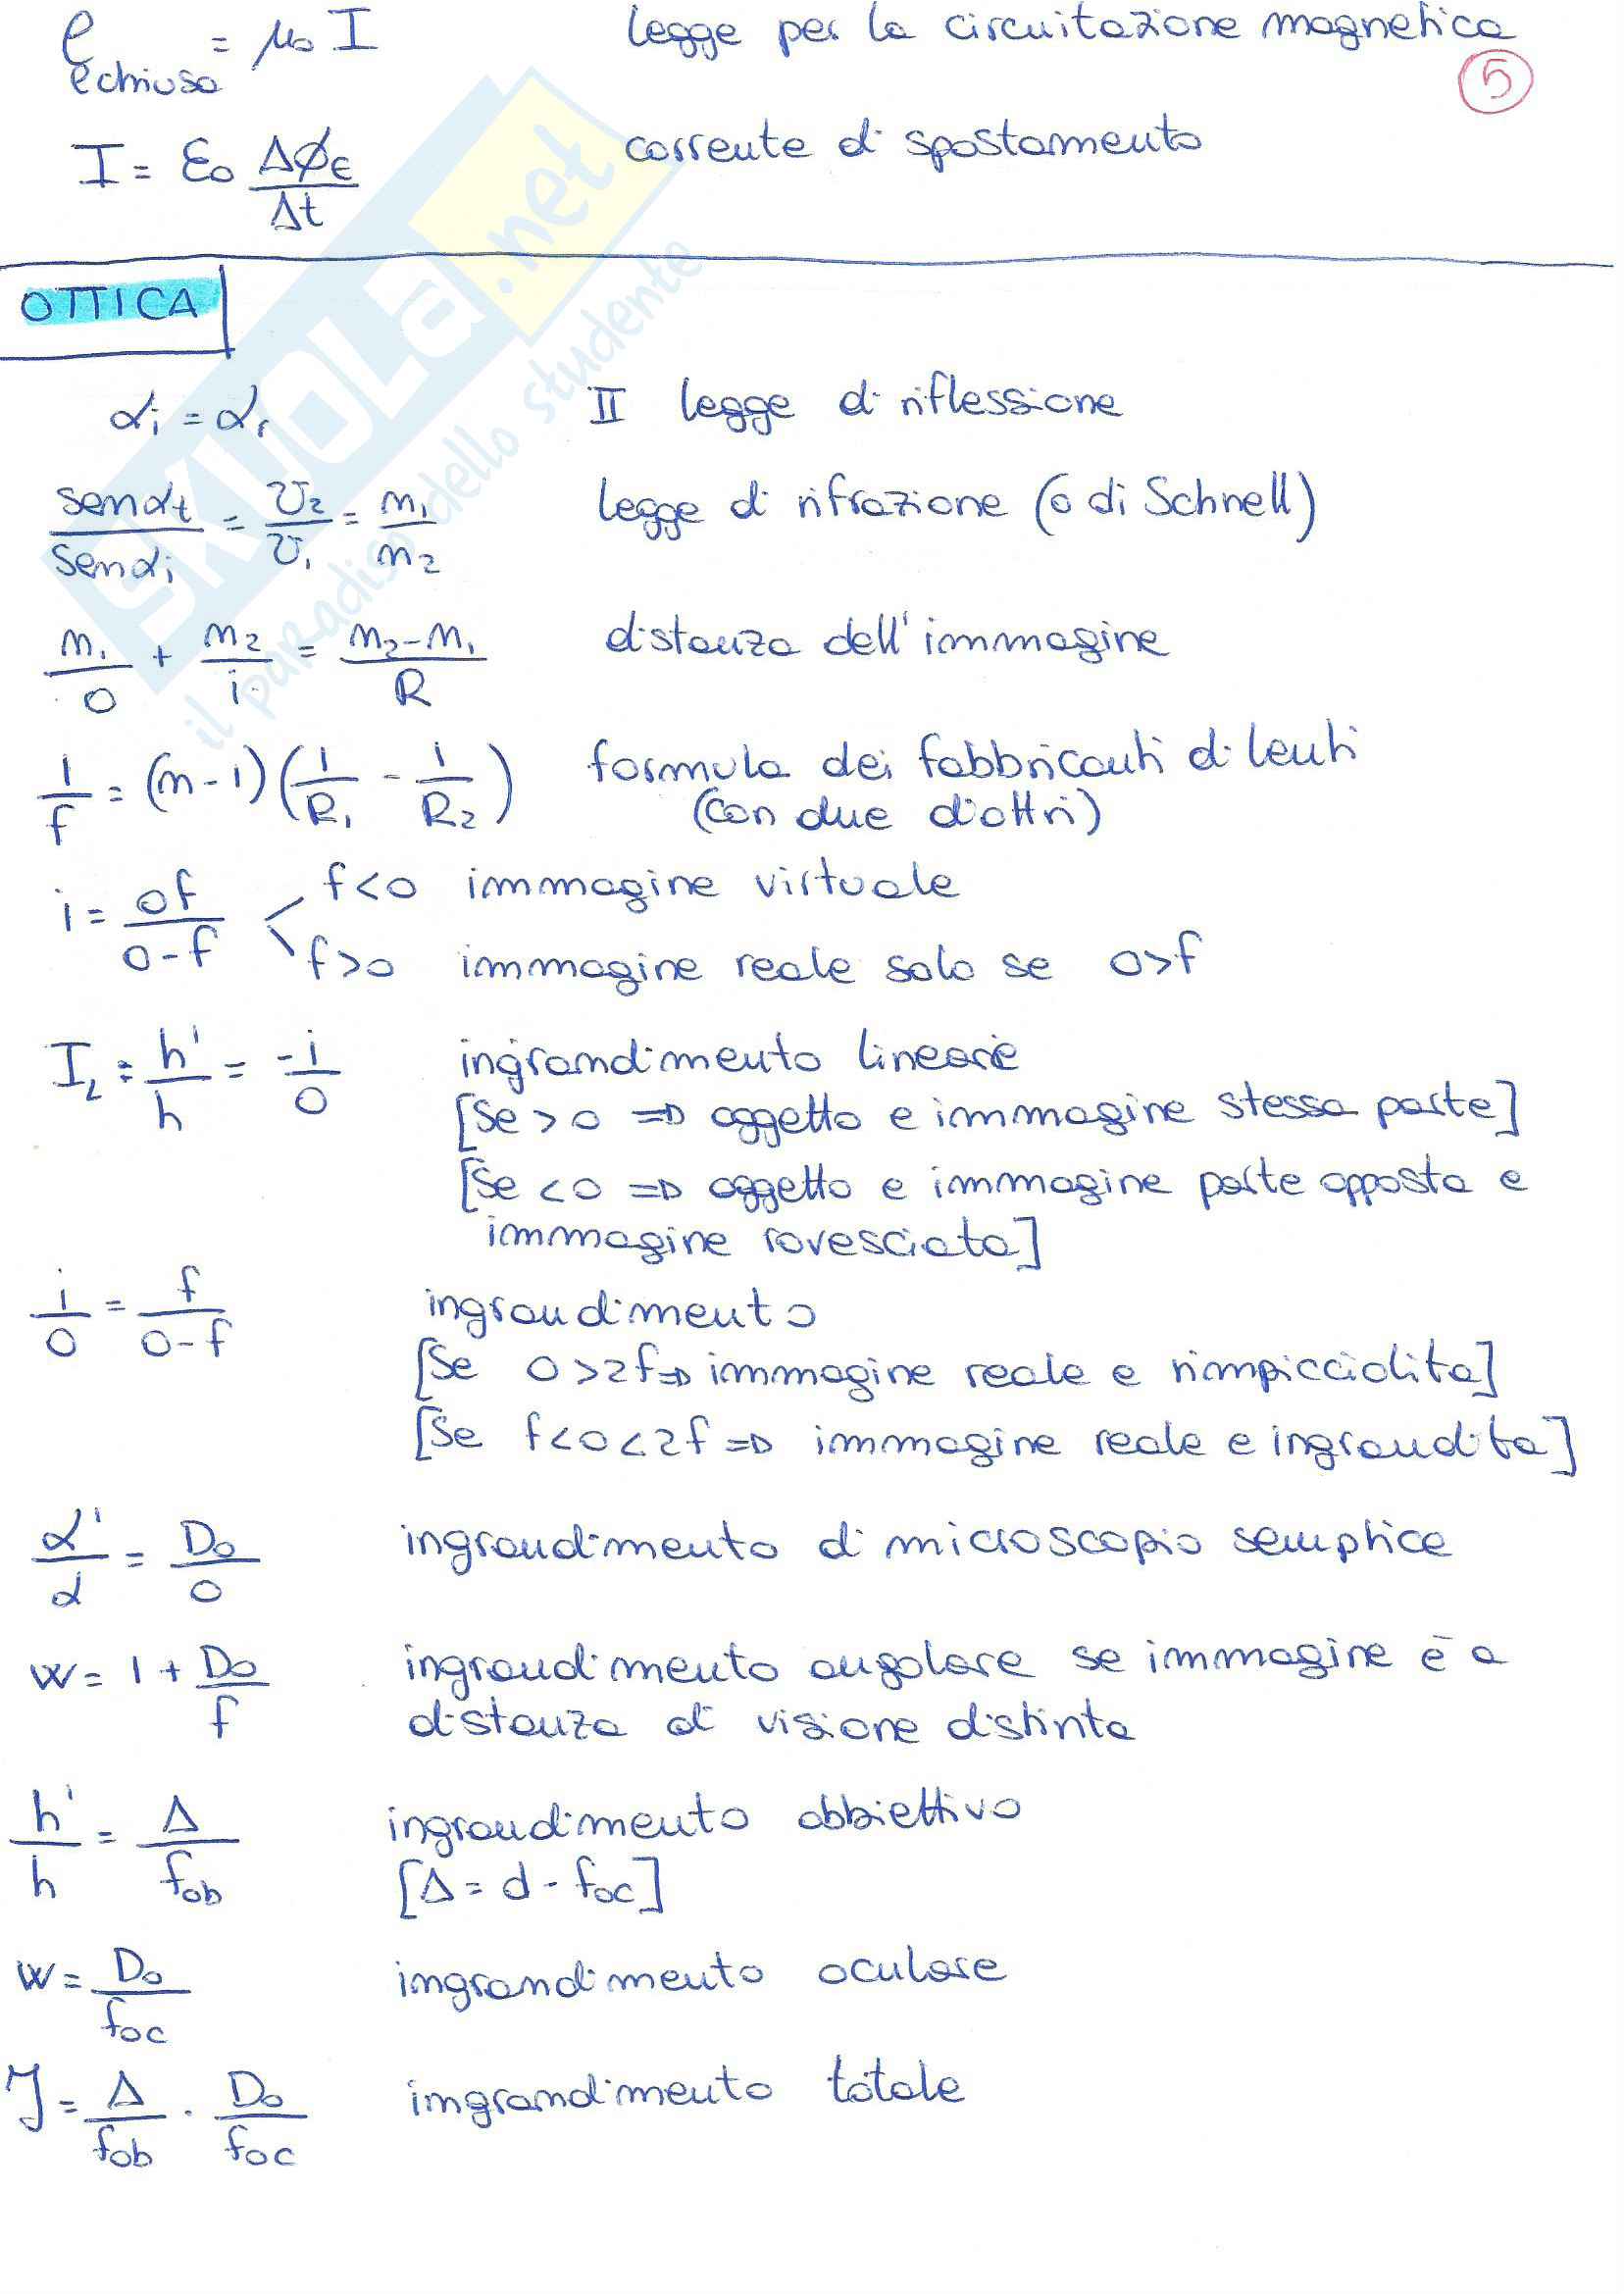 ℓ = μ₀ I legge per la circuitazione magnetica
ℓ chiusa
5
I = ε₀ ΔϕE/Δt corrente di spostamento
OTTICA
αi = αr II legge di riflessione
senαt/senαi = v₂/v₁ = n₁/n₂ legge di rifrazione (o di Schnell)
n₁/o + n₂/i = n₂-n₁/R distanza dell'immagine
1/f = (n-1)(1/R₁ - 1/R₂) formula dei fabbricanti di lenti
(con due diottri)
i = of/o-f < f<0 immagine virtuale
f>0 immagine reale solo se o>f
I_L = h'/h = -i/o ingrandimento lineare
[se >0 ⇒ oggetto e immagine stessa parte]
[se <0 ⇒ oggetto e immagine parte opposta e
immagine rovesciata]
i/o = f/o-f ingrandimento
[se o>2f ⇒ immagine reale e rimpicciolita]
[se f<o<2f ⇒ immagine reale e ingrandita]
α'/α = D₀/o ingrandimento di microscopio semplice
w = 1 + D₀/f ingrandimento angolare se immagine è a
distanza di visione distinta
h'/h = Δ/fob ingrandimento obbiettivo
[Δ = d - foc]
w = D₀/foc ingrandimento oculare
I = Δ/fob · D₀/foc ingrandimento totale
SKUOLA.net
il paradiso dello studente